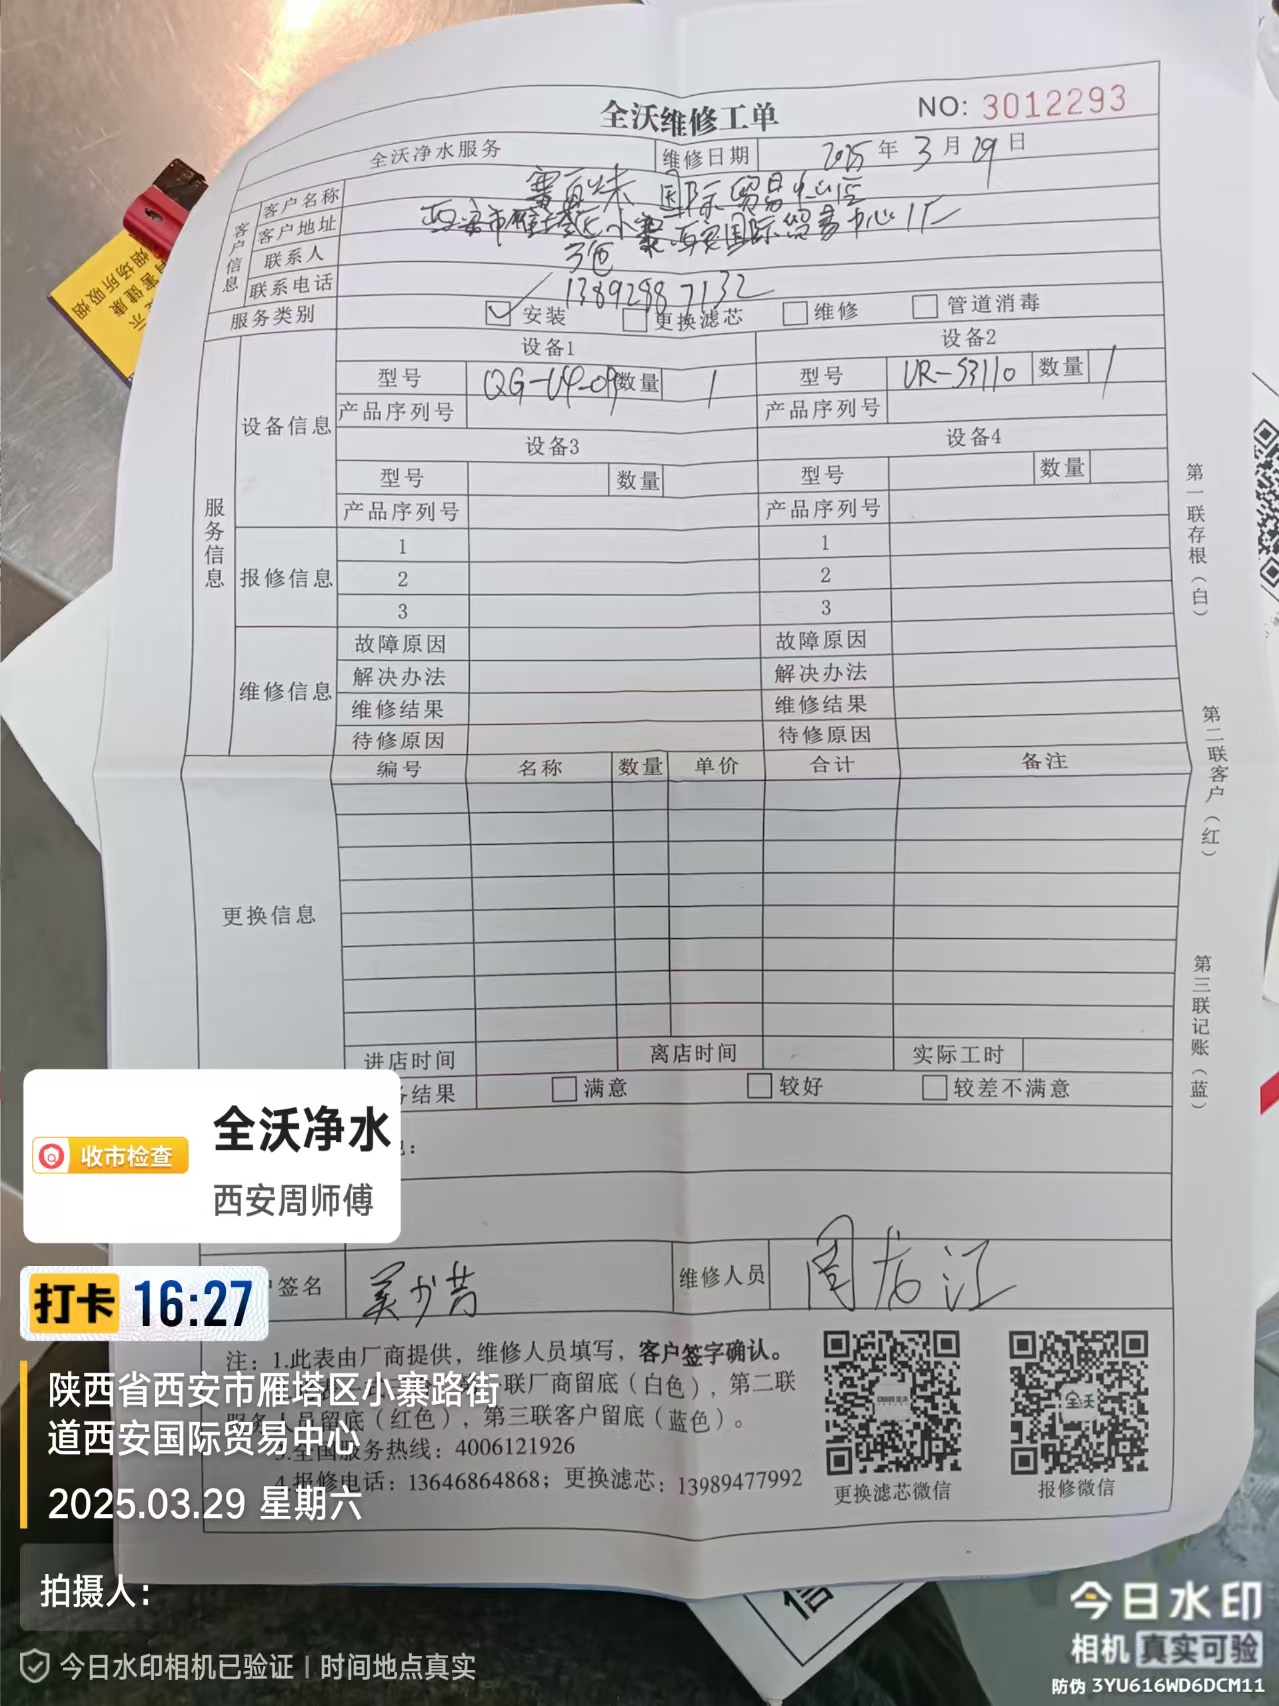 全沃维修工单
NO: 3012293
全沃净水服务 维修日期 2025年3月29日
客户信息
客户名称 国际贸易中心店
客户地址 西安市雁塔区小寨西安国际贸易中心11F
联系人
联系电话 13892887132
服务类别 ✓安装 更换滤芯 维修 管道消毒
服务信息
设备信息
设备1 设备2
型号 QG-U4-09 数量 1 型号 UR-S3110 数量 1
产品序列号 产品序列号
设备3 设备4
型号 数量 型号 数量
产品序列号 产品序列号
报修信息
1 1
2 2
3 3
维修信息
故障原因 故障原因
解决办法 解决办法
维修结果 维修结果
待修原因 待修原因
更换信息
编号 名称 数量 单价 合计 备注
进店时间 离店时间 实际工时
结果 满意 较好 较差不满意
签名 维修人员 周龙江
注：1.此表由厂商提供，维修人员填写，客户签字确认。
联厂商留底（白色），第二联
服务人员留底（红色），第三联客户留底（蓝色）。
3.全国服务热线：4006121926
4.报修电话：13646864868；更换滤芯：13989477992
更换滤芯微信
报修微信
第一联存根（白）
第二联客户（红）
第三联记账（蓝）
收市检查
全沃净水
西安周师傅
打卡 16:27
陕西省西安市雁塔区小寨路街
道西安国际贸易中心
2025.03.29 星期六
拍摄人：
今日水印相机已验证 | 时间地点真实
今日水印
相机 真实可验
防伪 3YU616WD6DCM11